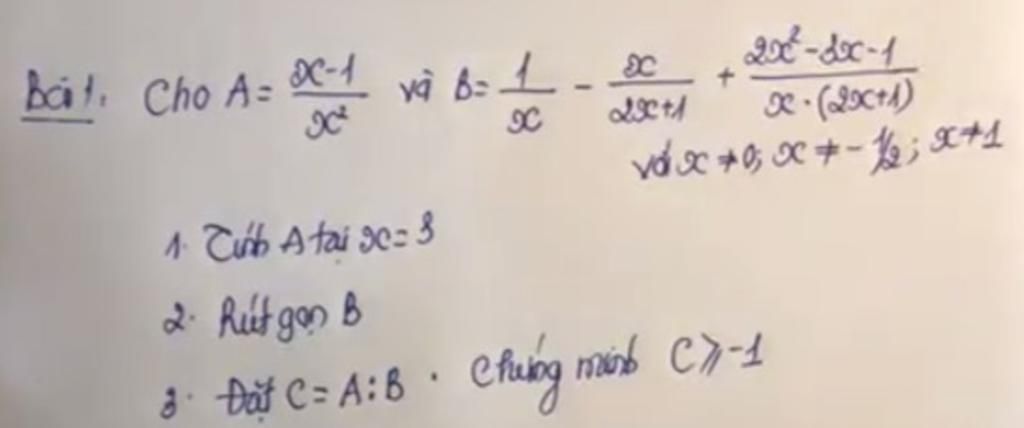 Bài 1. Cho A = \frac{x-1}{x²} và B = \frac{1}{x} - \frac{x}{2x+1} + \frac{2x²-3x-1}{x.(2x+1)}
với x ≠ 0; x ≠ -1/2; x ≠ 1
1. Tính A tại x = 3
2. Rút gọn B
3. Đặt C = A : B . Chứng minh C ⩾ -1